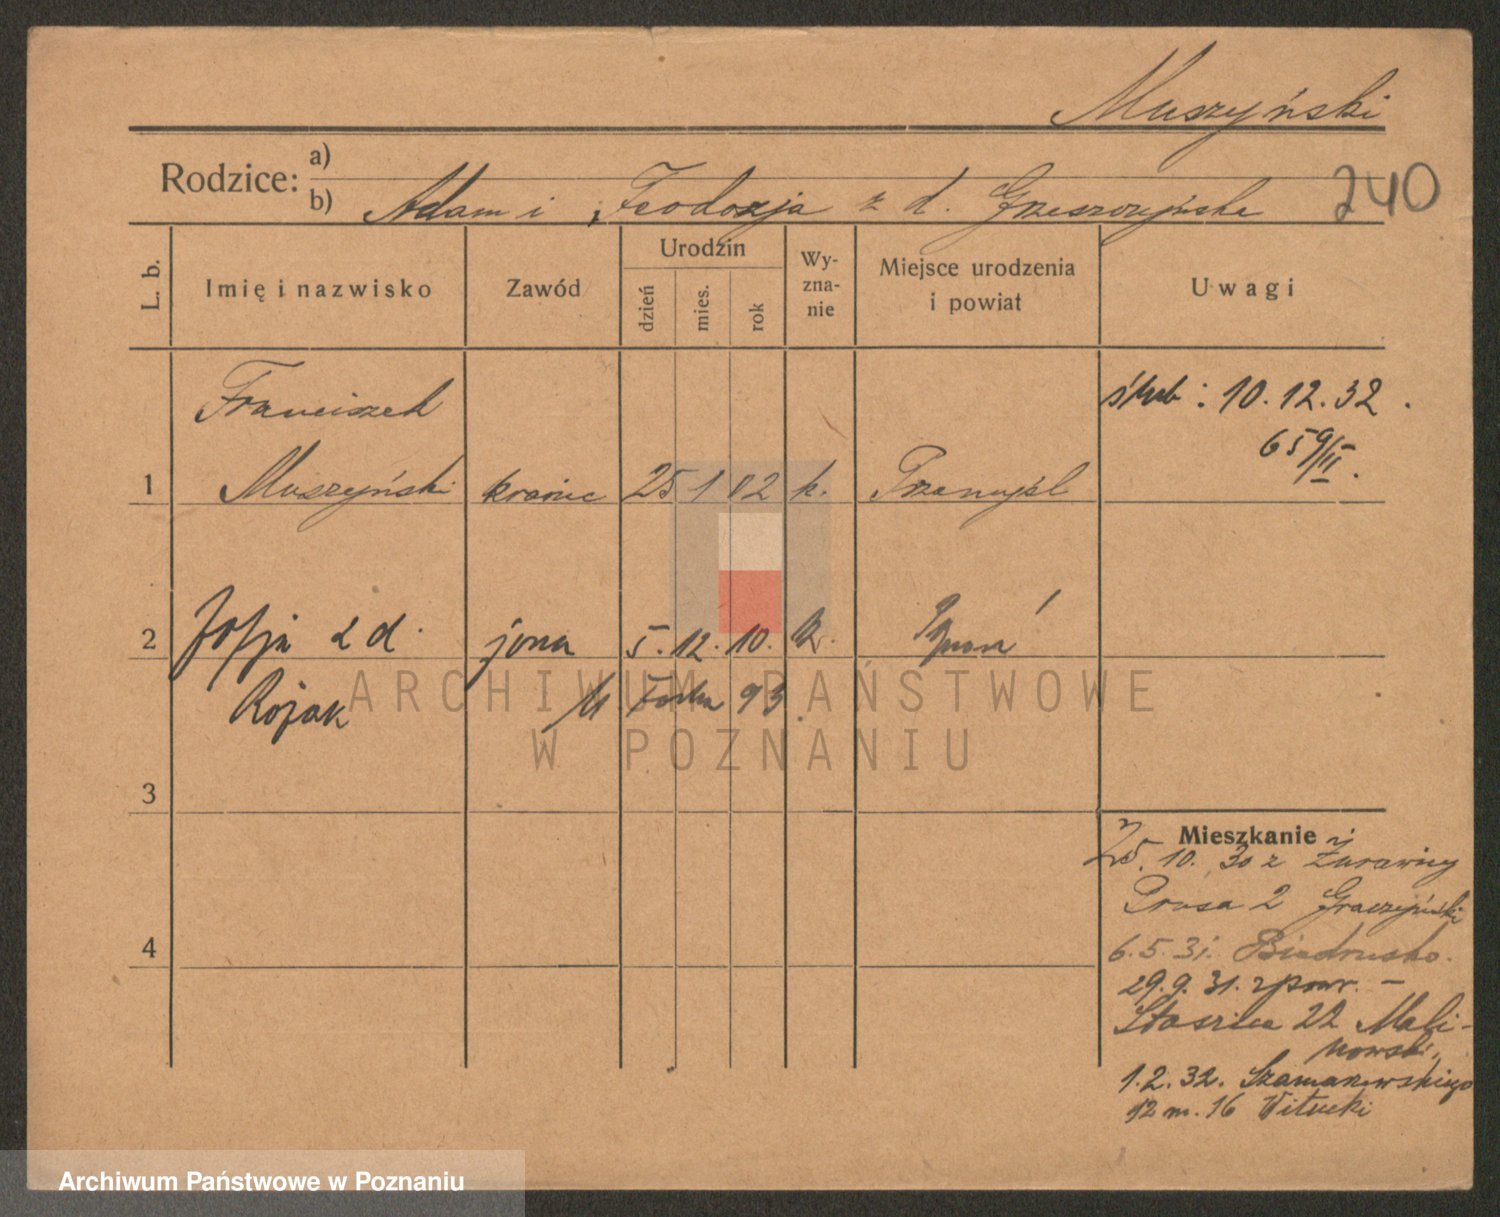 Muszyński
Rodzice: a)
b) Adam i Feodozja z d. Grzeszczyńska 240
L. b. Imię i nazwisko Zawód Urodzin dzień mies. rok Wy-zna-nie Miejsce urodzenia i powiat Uwagi
Franciszek ślub: 10.12.32.
659/II.
1 Muszyński 25 1 02 k. Przemyśl
2 Zofja z d. żona 5. 12. 10. k. Poznań
Rożak 93
3
Mieszkanie
25.10.30 z Żurawicy
Prusa 2
4 6.5.31. Biedrusko.
29.9.31. zpowr. –
Staszica 22 Mali-
nowski,
1.2.32. Szamarzewskiego
12 m. 16 Witucki
ARCHIWUM PAŃSTWOWE
W POZNANIU
Archiwum Państwowe w Poznaniu